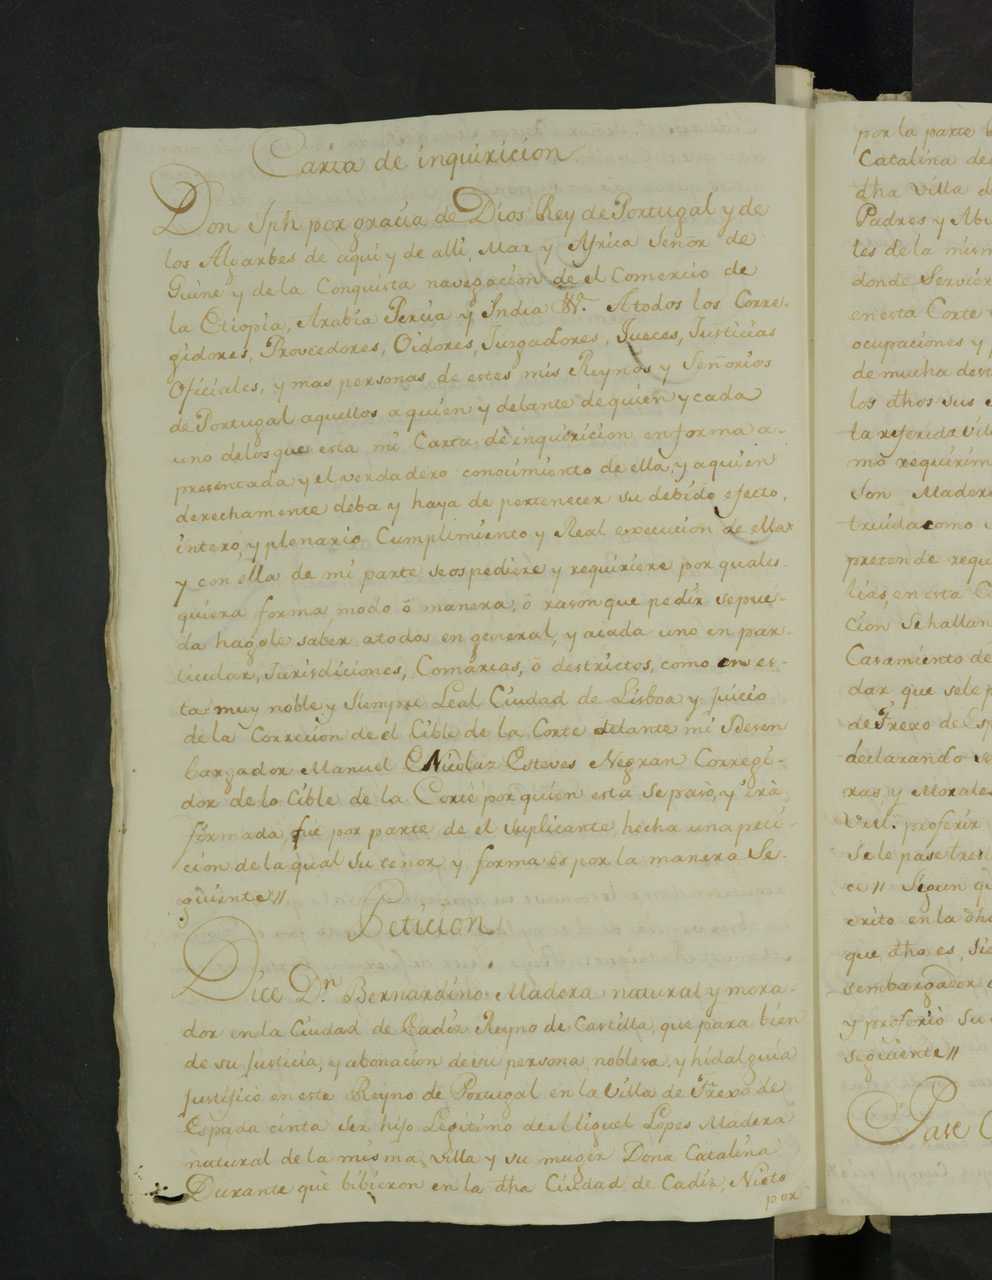 Carta de inquiricion
Don Jph por gracia de Dios Rey de Portugal y de
los Algarbes de aqui y de alli, Mar y Africa Señor de
Guine y de la Conquista navegacion de el Comercio de
la Etiopia, Arabia Percia y India &ª. Atodos los Corre-
gidores, Proveedores, Oidores, Jurgadores, Jueces, Justicias
Oficiales, y mas personas de estes mis Reynos y Señorios
de Portugal aquellos aquien y delante de quien y cada
uno delos que esta mi Carta de inquiricion en forma a-
presentada y el verdadero conocimiento de ella, y aquien
derechamente deba y haya de pertenecer su debido efecto,
intero, y plenario Cumplimiento y Real execucion de ella
y con ella de mi parte se os pediere y requiriere por quales-
quiera forma, modo ô manera, ô rason que pedir se pue-
da hagole saber atodos en general, y acada uno en par-
ticular, Jurisdiciones, Comarcas, ô destrictos, como en es-
ta muy noble y siempre Leal Ciudad de Lisboa y Juicio
de la Correcion de el Cible de la Corte delante mi Desem
bargador Manuel Nicolaz Esteves Negran Corregi-
dor de lo Cible de la Corte por quien esta se pasò, y irà
firmada, fue por parte de el suplicante hecha una peti-
cion de la qual su tenor y forma es por la manera Se-
guiente //
Peticion
Dice Dn Bernardino Madera natural y mora-
dor en la Ciudad de Cadiz Reyno de Castilla, que para bien
de su Justicia, y abonacion de su persona nobleza, y hidalguia
justificò en este Reyno de Portugal en la Villa de Frexo de
Espada cinta Ser hijo Legitimo de Miguel Lopes Madera
natural de la misma villa y su muger Dona Catalina
Durante que bibieron en la dha Ciudad de Cadiz, Nieto
por
por la parte
Catalina de
dha Villa d
Padres y Abu
tes de la mism
donde Servier
en esta Corte
ocupaciones y
de mucha dest
los dhos sus
la referida Vil
mo requirim
son Madera
truida como
pretende requ
lias, en esta C
cion Se hallan
Casamiento de
dar que sele p
de Frexo de Esp
declarando se
ras y Morales
Vill. proferir
Sele pase tres
ca // Segun q
crito en la dha
que dho es, sie
sembargador
y proferiò su
seguiente //
Pase